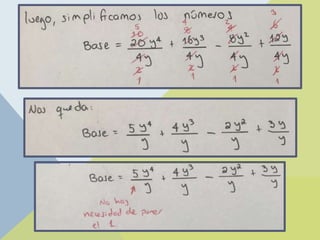 luego, simplificamos los números
5 4 2 3
10 8 4 6
Base = 20y⁴/4y + 16y³/4y − 8y²/4y + 12y/4y
2 2 2 2
1 1 1 1
Nos queda:
Base = 5y⁴/y + 4y³/y − 2y²/y + 3y/y
Base = 5y⁴/y + 4y³/y − 2y²/y + 3y/y
No hay
necesidad de poner
el 1